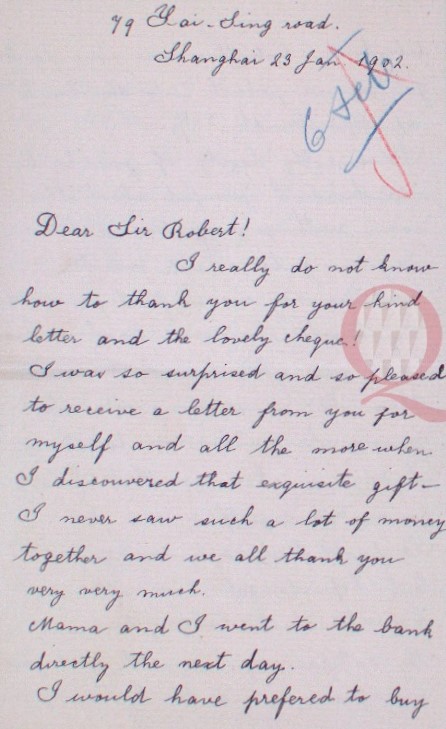 79 Yai-Sing road.
Shanghai 23 Jan. 1902.
6 Feb
Dear Sir Robert!
I really do not know
how to thank you for your kind
letter and the lovely cheque!
I was so surprised and so pleased
to receive a letter from you for
myself and all the more when
I discouvered that exquisite gift-
I never saw such a lot of money
together and we all thank you
very very much.
Mama and I went to the bank
directly the next day.
I would have prefered to buy